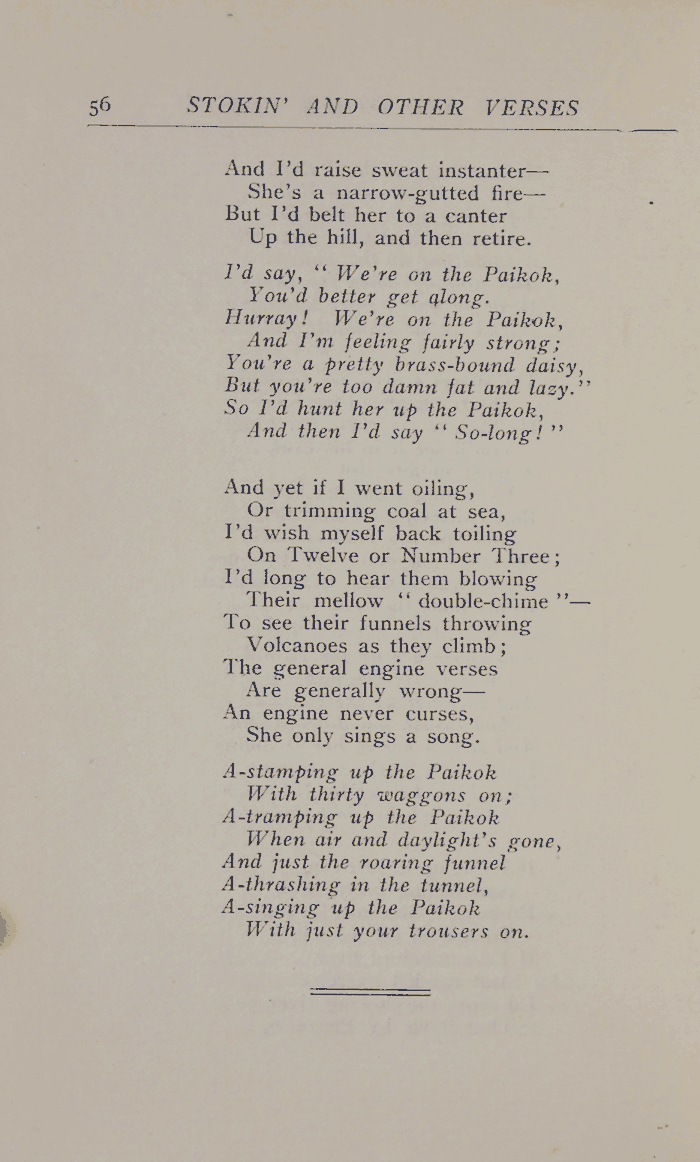 56 STOKIN' AND OTHER VERSES
And I'd raise sweat instanter—
She's a narrow-gutted fire—
But I'd belt her to a canter
Up the hill, and then retire.
I'd say, " We're on the Paikok,
You'd better get along.
Hurray! We're on the Paikok,
And I'm feeling fairly strong;
You're a pretty brass-bound daisy,
But you're too damn fat and lazy."
So I'd hunt her up the Paikok,
And then I'd say " So-long! "
And yet if I went oiling,
Or trimming coal at sea,
I'd wish myself back toiling
On Twelve or Number Three;
I'd long to hear them blowing
Their mellow " double-chime "—
To see their funnels throwing
Volcanoes as they climb;
The general engine verses
Are generally wrong—
An engine never curses,
She only sings a song.
A-stamping up the Paikok
With thirty waggons on;
A-tramping up the Paikok
When air and daylight's gone,
And just the roaring funnel
A-thrashing in the tunnel,
A-singing up the Paikok
With just your trousers on.